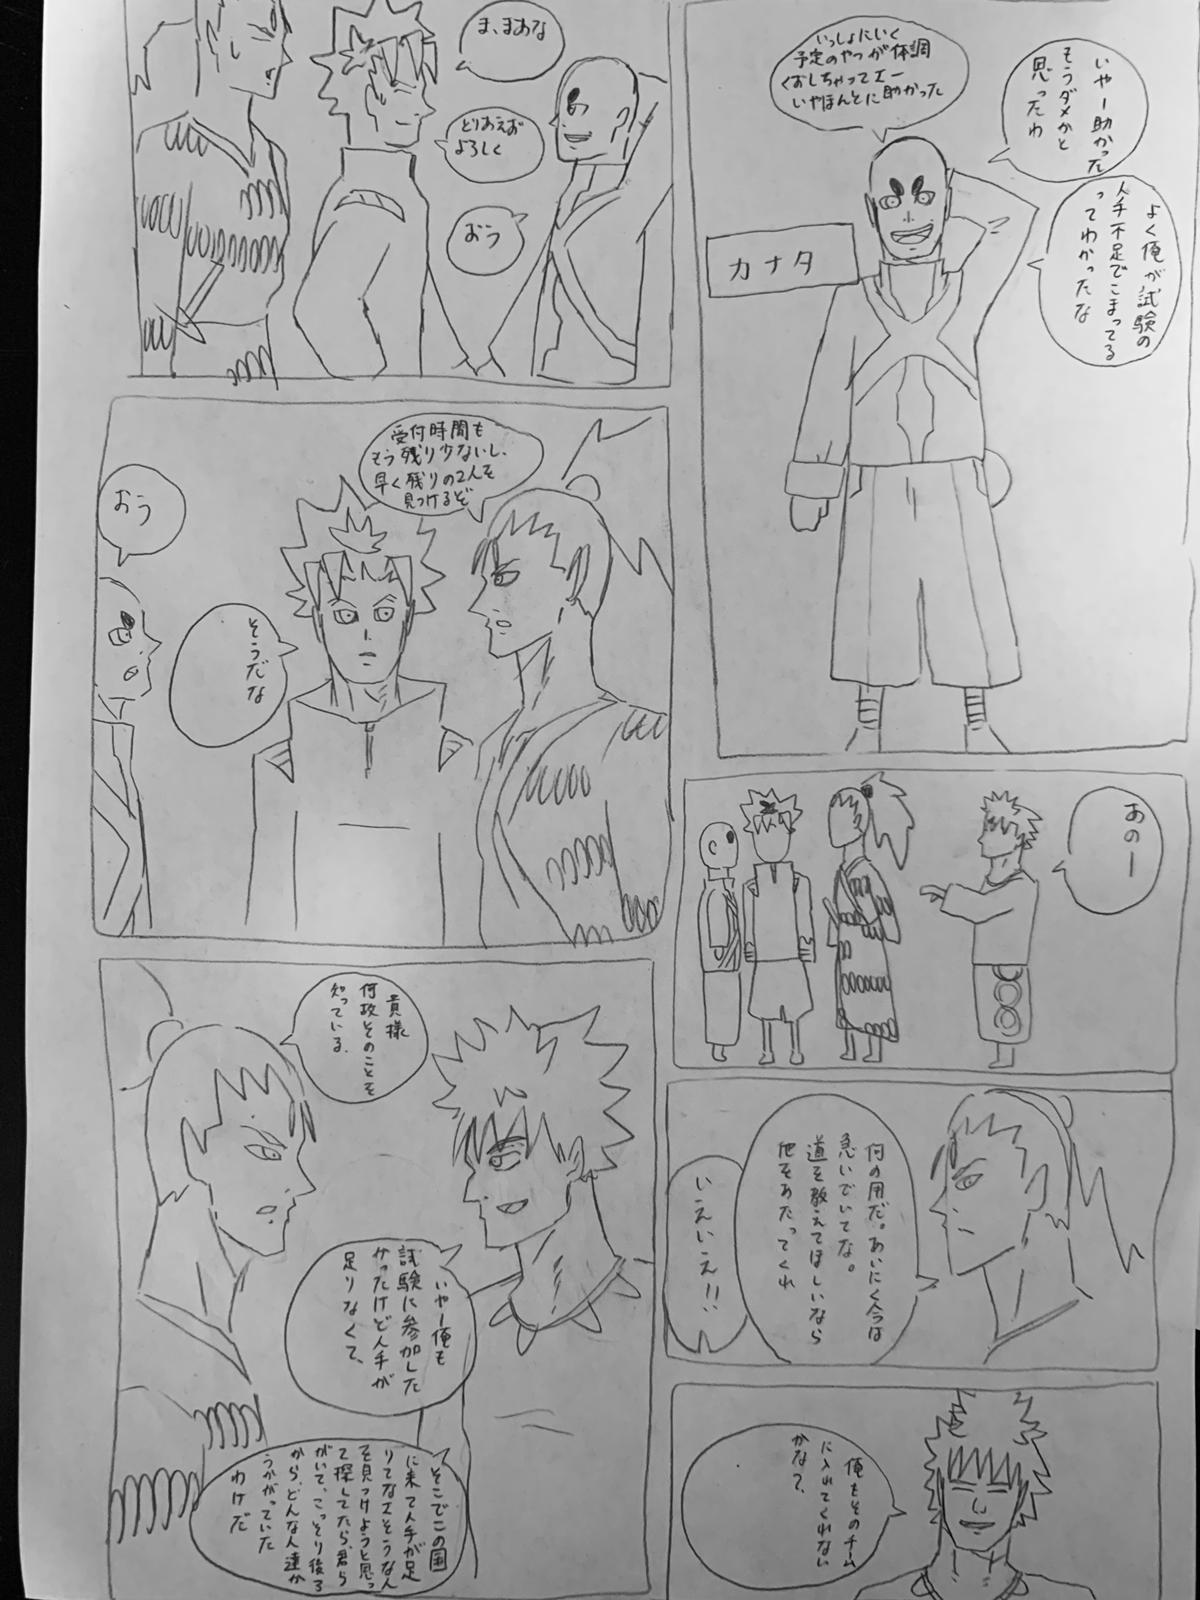 いやー助かった
もうダメかと
思ったわ
いっしょにいく
予定のやつが体調
くずしちゃってェー
いやほんとに助かった
よく俺が試験の
人手不足でこまってる
ってわかったな
カナタ
ま、まあな
とりあえず
よろしく
おう
受付時間も
もう残り少ないし、
早く残りの2人を
見つけるぞ
そうだな
おう
あのー
何の用だ。あいにく今は
急いでいてな。
道を教えてほしいなら
他をあたってくれ
いえいえ!!
俺もそのチーム
に入れてくれない
かな?
貴様
何故そのことを
知っている、
いやー俺も
試験に参加した
かったけど人手が
足りなくて、
そこでこの国
に来て人手が足
りてなさそうな人
を見つけようと思っ
て探してたら、君ら
がいて、こっそり後ろ
から、どんな人達か
うかがっていた
わけだ